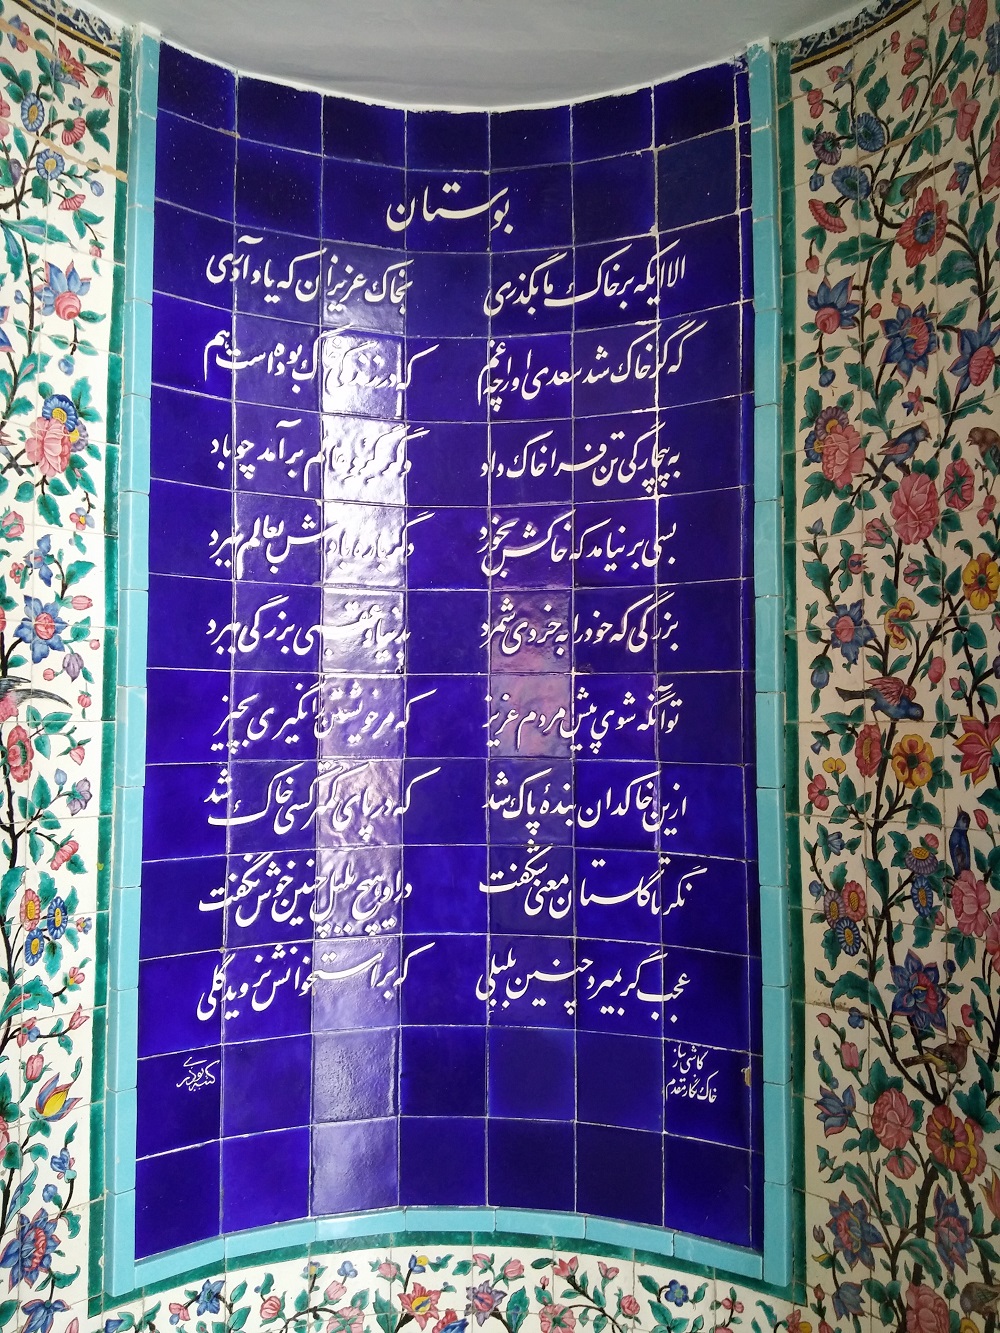 بوستان
الا ایکه بر خاک ما بگذری بخاک عزیزان که یاد آوری
که گر خاک شد سعدی او را چه غم که در زندگی خاک بوده است هم
به بیچارگی تن فرا خاک داد دگر گرد عالم برآمد چو باد
بسی برنیامد که خاکش بخورد دگر باره بادش بعالم ببرد
بزرگی که خود را به خردی شمرد بدنیا و عقبی بزرگی ببرد
تو آنگه شوی پیش مردم عزیز که مر خویشتن را نگیری بچیز
ازین خاکدان بندهٔ پاک شد که در پای کمتر کسی خاک شد
نگر تا گلستان معنی شگفت در او هیچ بلبل چنین خوش نگفت
عجب گر بمیرد چنین بلبلی که بر استخوانش نروید گلی
کاشی ساز
خاک نگار مقدم
کتبه بوذری